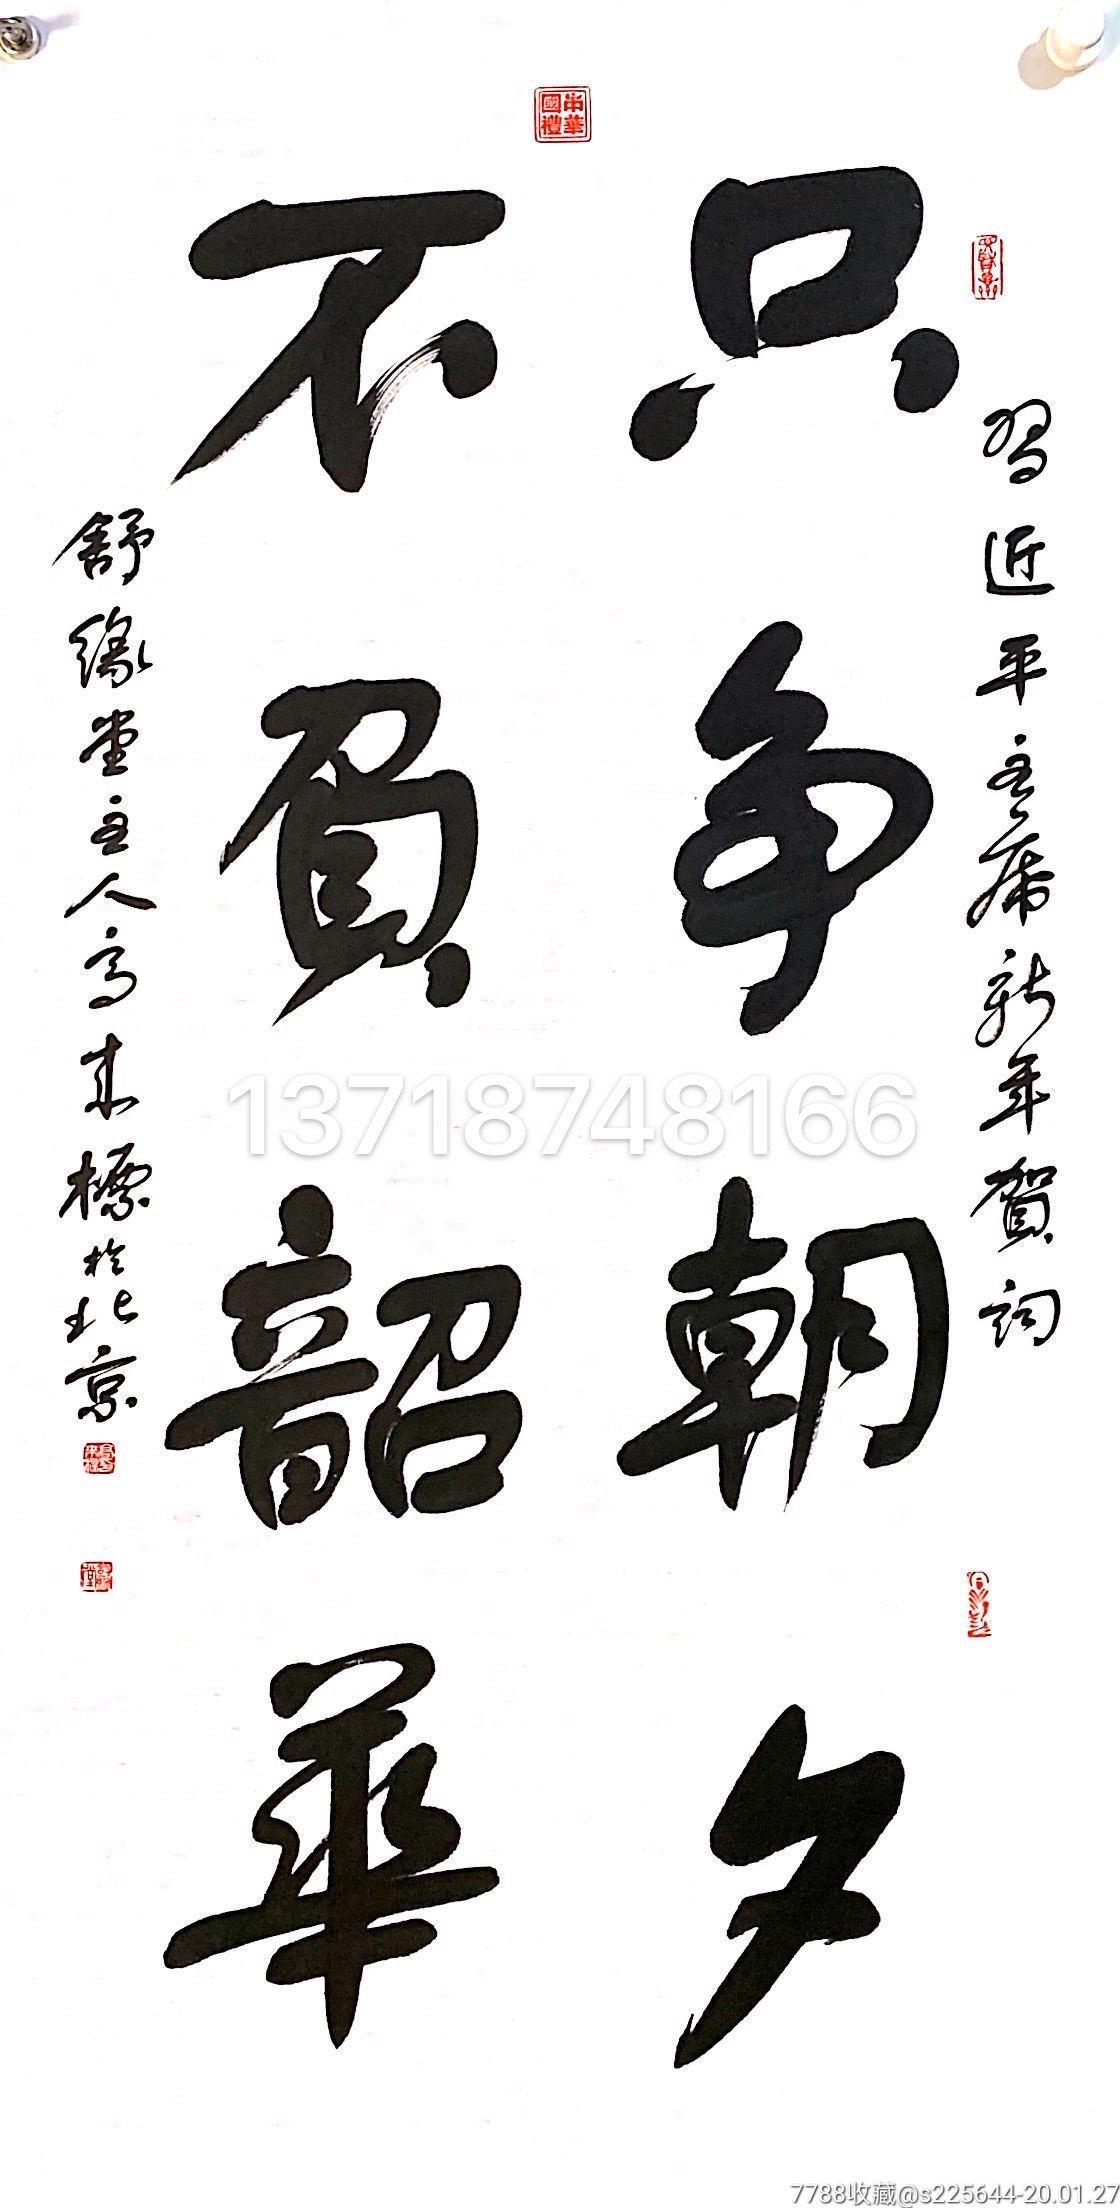 習近平主席新年賀詞
只争朝夕
不負韶華
舒緣堂主人高來標於北京
中華國禮
13718748166
7788收藏@s225644-20.01.27